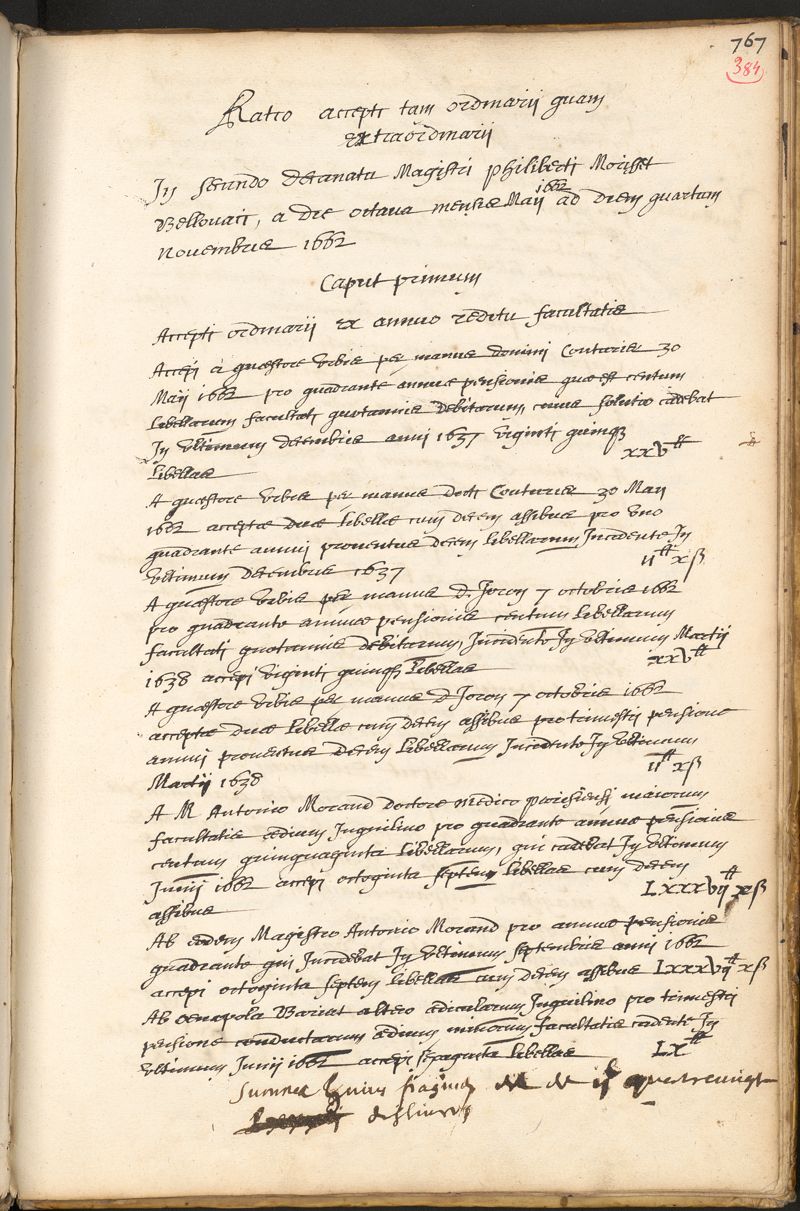 767
384
Ratio accepti tam ordinarii quam
extraordinarii
In secundo decanatu Magistri philiberti Morisset
1662
Bellovaci, a die octava mensis Maii ad diem quartum
Novembris 1662
Caput primum
Accepti ordinarii ex annuo reditu facultatis
Accepi à quæstore urbis per manus domini Couturier 30
Maii 1662 pro quadrante annuæ pensionis quæ est centum
libellarum facultati quotannis debitarum, cuius solutio cadebat
In ultimum decembris anni 1637 viginti quinq3
libellas
xxv ₶
A quæstore urbis per manus docti Couturier 30 Maii
1662 acceptæ duæ libellæ cum decem assibus pro uno
quadrante annui proventus decem libellarum Incidente In
ultimum decembris 1637
ii ₶ x ß
A quæstore urbis per manus D. Joron 7 octobris 1662
pro quadrante annuæ pensionis centum libellarum
facultati quotannis debitarum, Incidente In ultimum Martii
1638 accepi viginti quinq3 libellas
xxv ₶
A quæstore urbis per manus D Joron 7 octobris 1662
acceptæ duæ libellæ cum decem assibus pro trimestri pensione
annui proventus decem libellarum Incidente In ultimum
Martii 1638
ii ₶ x ß
A M Antonio Morand doctore medico parisiensi maiorum
facultatis ædium Inquilino pro quadrante annuæ pensionis
centum quinquaginta libellarum, qui cadebat In ultimum
Junii 1662 accepi octoginta septem libellas cum decem
assibus
Lxxxvii ₶ x ß
Ab eodem Magistro Antonio Morand pro annuæ pensionis
quadrante qui Incidebat In ultimum septembris anni 1662
accepi octoginta septem libellas cum decem assibus Lxxxvii ₶ x ß
Ab œnopola Barrat altero ædicularum Inquilino pro trimestri
pensione conductarum ædium minorum facultatis cedente In
ultimum Junii 1662 accepi sexaginta libellas
Lx ₶
Summa huius paginæ quatrevingt